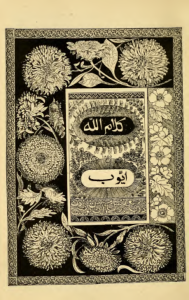 كلام الله
ايوب